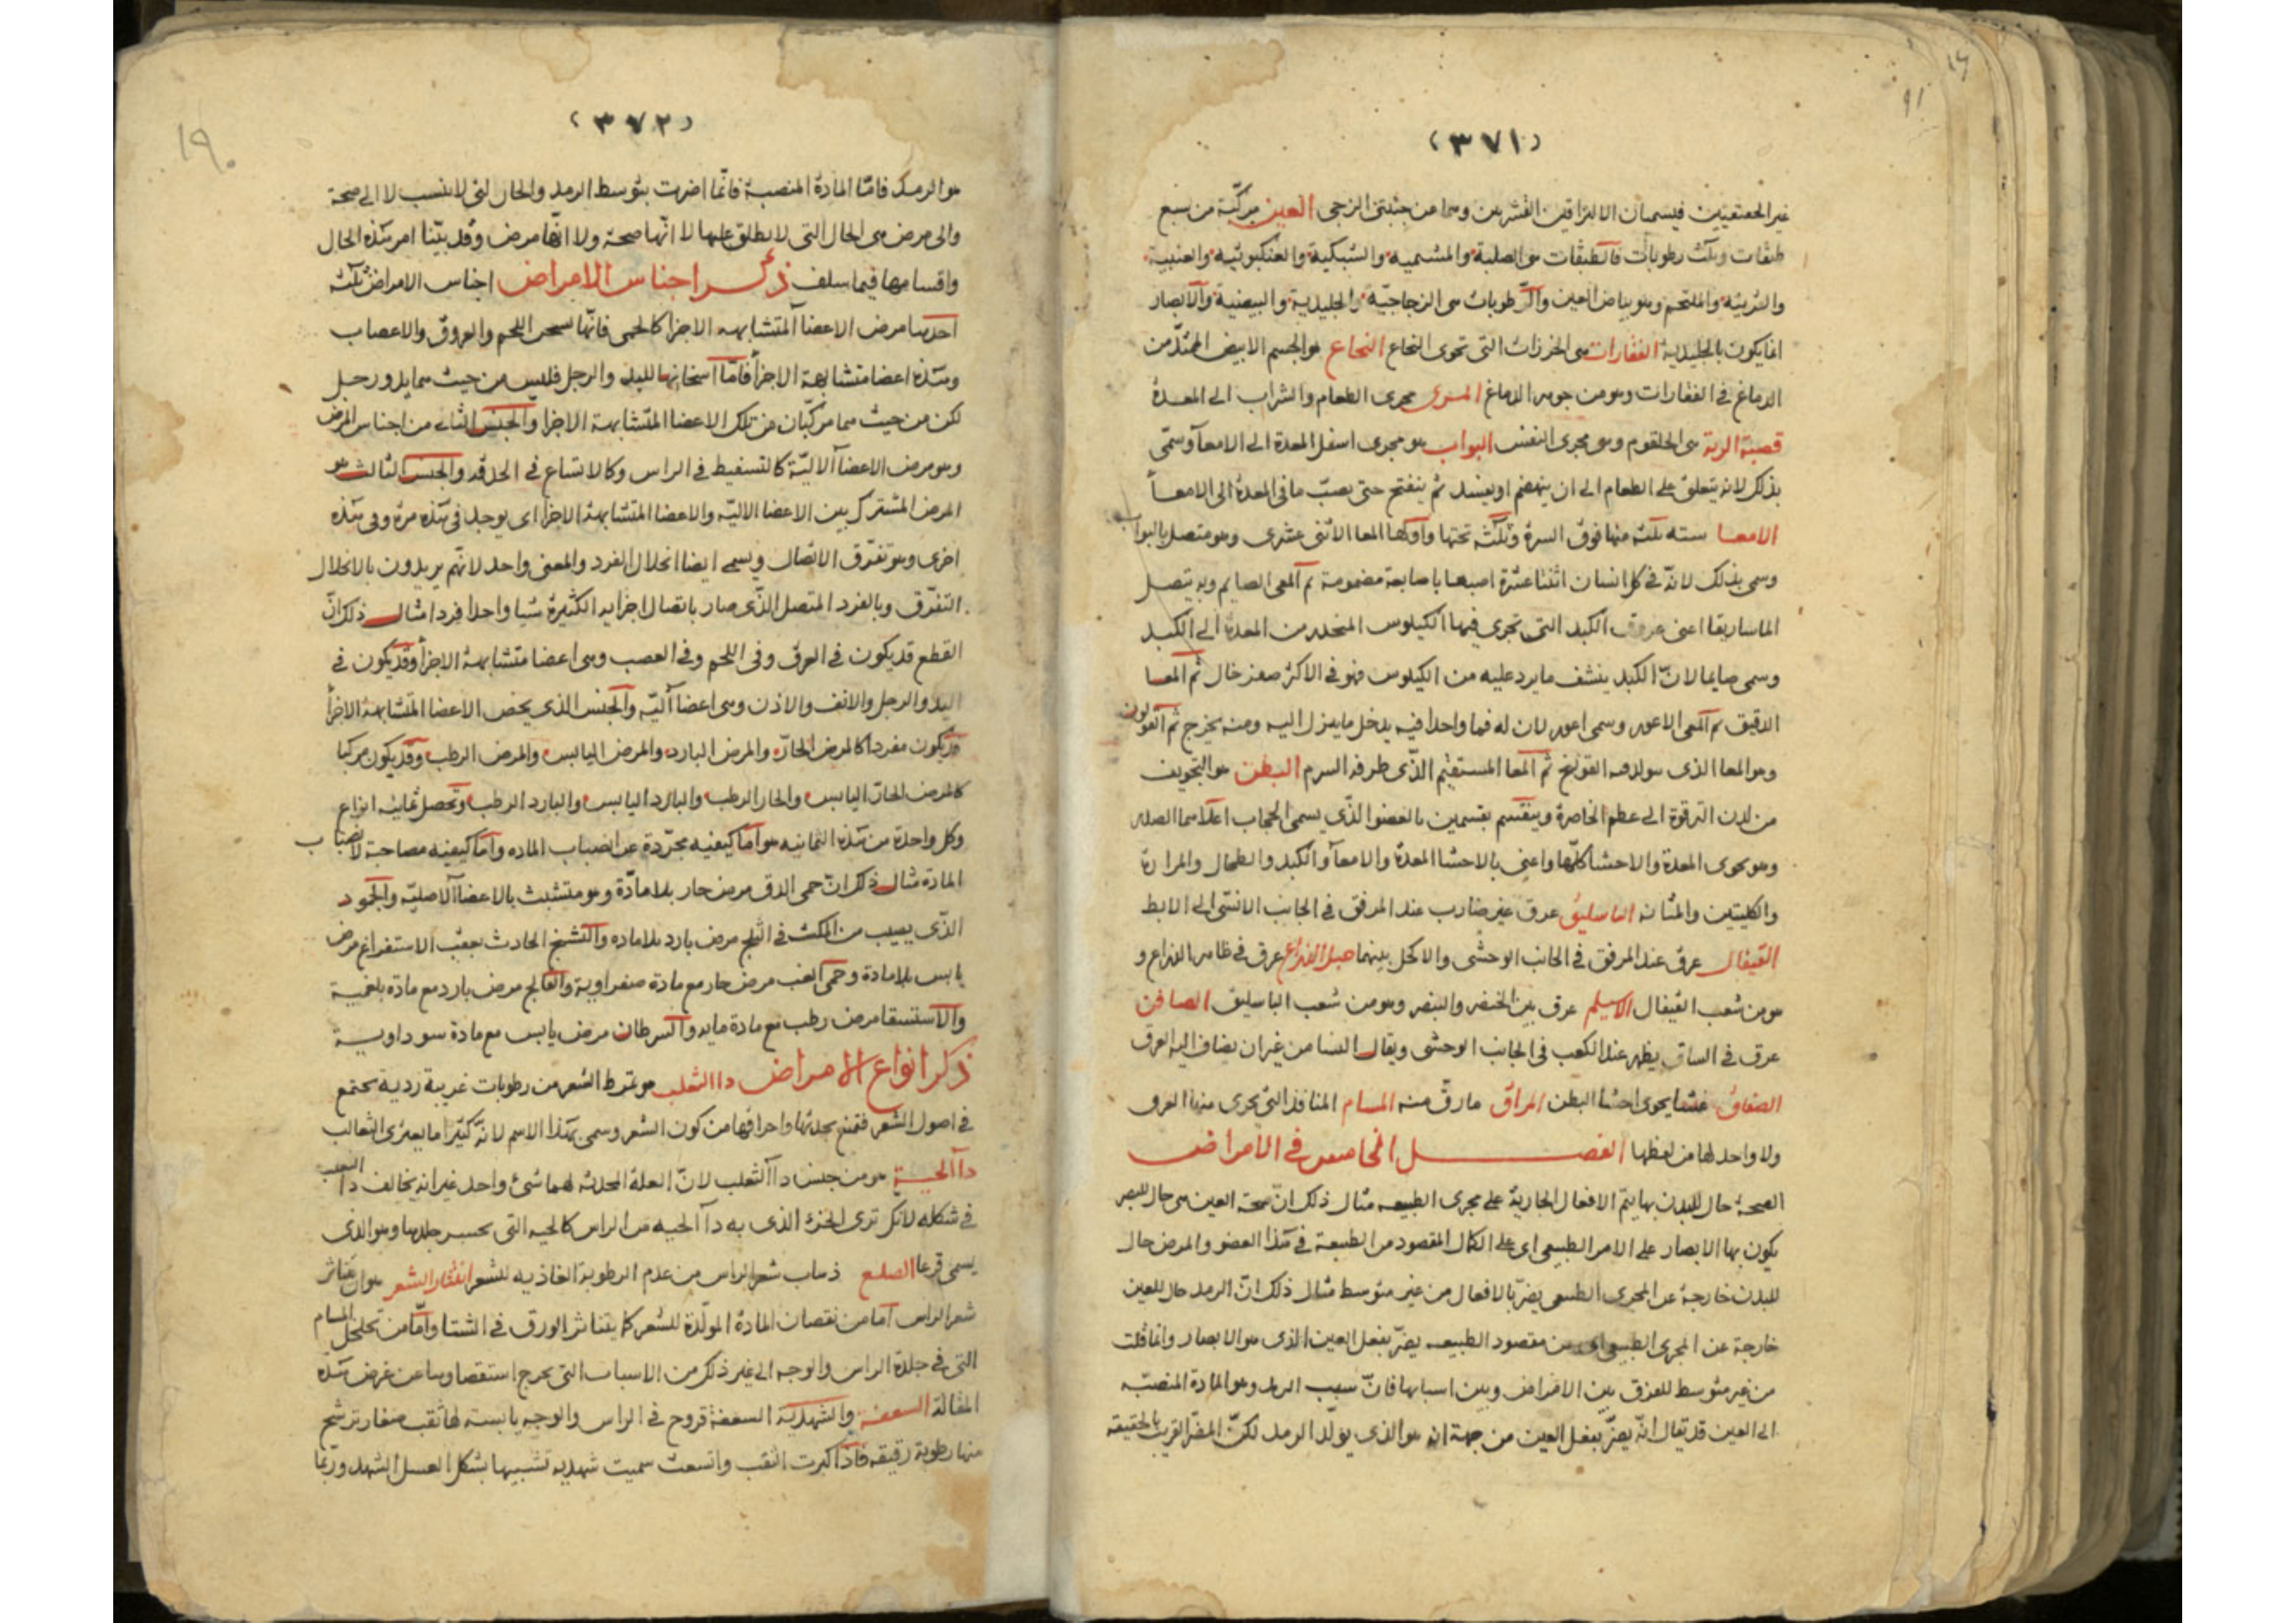 (٣٧١)
غير الحقيقيين فيسميان الالتزاقين القشريين وهما من جنبتي الزجي العين مركبة من سبع
طبقات وثلث رطوبات فالطبقات هي الصلبة والمشيمية والشبكية والعنكبوتية والعنبية
والقرنية والملتحم وهو بياض العين والرطوبات هي الزجاجية والجليدية والبيضية والابصار
انما يكون بالجليدية الفقارات هي الخرزات التي تحوى النخاع النخاع هو الجسم الابيض الممتد من
الدماغ في الفقارات وهو من جوهر الدماغ المرى مجرى الطعام والشراب الى المعدة
قصبة الرية هي الحلقوم وهو مجرى النفس البواب هو مجرى اسفل المعدة الى الامعآ وسمى
بذلك لانه يتعلق على الطعام الى ان ينهضم او يفسد ثم ينفتح حتى يصب ما في المعدة الى الامعآ
الامعا سته ثلثه منها فوق السرة وثلثه تحتها واولها المعا الاثنى عشرى وهو متصل بالبواب
وسمى بذلك لانه في كل انسان اثنتا عشرة اصبعا باصابعه مضمومة ثم المعى الصايم وبه يتصل
الماساريقا اعنى عروق الكبد التي تجرى فيها الكيلوس المنحدر من المعدة الى الكبد
وسمى صايما لان الكبد ينشف ما يرد عليه من الكيلوس فهو في الاكثر صفر خال ثم المعا
الدقيق ثم المعى الاعور وسمى اعور لان له فما واحدا فيه يدخل ما ينزل اليه ومنه يخرج ثم القولون
وهو المعا الذى يتولد فيه القولنج ثم المعا المستقيم الذى طرفه السرم البطن هو التجويف
من لدن الترقوة الى عظم الخاصرة وينقسم بقسمين بالعضو الذى يسمى الحجاب اعلاهما الصدر
وهو يحوى المعدة والاحشا كلها واعنى بالاحشا المعدة والامعآ والكبد والطحال والمرارة
والكليتين والمثانه الباسليق عرق غير ضارب عند المرفق في الجانب الانسى الى الابط
القيفال عرق عند المرفق في الجانب الوحشى والاكحل بينهما حبل الذراع عرق في ظاهر الذراع و
هو من شعب القيفال الاسيلم عرق بين الخنصر والبنصر وهو من شعب الباسليق الصافن
عرق في الساق يظهر عند الكعب في الجانب الوحشى ويقال النسا من غير ان يضاف اليه العرق
الصفاق غشا يحوى احشا البطن المراق ما رق منه المسام المنافذ التي يجرى منها العرق
ولا واحد لها من لفظها الفصل الخامس في الامراض
الصحة حال للبدن بها يتم الافعال الجارية على مجرى الطبيعه مثال ذلك ان صحة العين هي حال للبصر
يكون بها الابصار على الامر الطبيعى اى على الكمال المقصود من الطبيعة في هذا العضو والمرض حال
للبدن خارجة عن المجرى الطبيعى يضر بالافعال من غير متوسط مثال ذلك ان الرمد حال للعين
خارجة عن المجرى الطبيعى اى من مقصود الطبيعه يضر بفعل العين الذى هو الابصار وانما قلت
من غير متوسط للفرق بين الامراض وبين اسبابها فان سبب الرمد وهو المادة المنصبه
الى العين قد يقال انه يضر بفعل العين من جهة انه هو الذى يولد الرمد لكن المضر القريب بالحقيقه
(٣٧٢)
١٩٠
هو الرمد فاما المادة المنصبة فانما اضرت بتوسط الرمد والحال التي لا ينسب لا الى صحة
والى مرض هى الحال التي لا يطلق عليها لا انها صحة ولا انها مرض وقد بينا امر هذه الحال
واقسامها فيما سلف ذكر اجناس الامراض اجناس الامراض ثلثه
احدها مرض الاعضا المتشابهه الاجزا كالحمى فانها تسخن اللحم والعروق والاعصاب
وهذه اعضا متشابهة الاجزا فاما اسخانها لليد والرجل فليس من حيث هما يد ورجل
لكن من حيث هما مركبان من تلك الاعضا المتشابهة الاجزا والجنس الثانى من اجناس المرض
وهو مرض الاعضا الالية كالتسفيط في الراس وكالاتساع في الحدقه والجنس الثالث هو
المرض المشترك بين الاعضا الاليه والاعضا المتشابهة الاجزا اى يوجد في هذه مرة وفى هذه
اخرى وهو تفرق الاتصال ويسمى ايضا انحلال الفرد والمعنى واحد لانهم يريدون بالانحلال
التفرق وبالفرد المتصل الذى صار باتصال اجزايه الكثيرة شيا واحدا فردا مثال ذلك ان
القطع قد يكون في العرق وفى اللحم وفى العصب وهى اعضا متشابهة الاجزا وقد يكون في
اليد والرجل والانف والاذن وهى اعضا آلية والجنس الذى يخص الاعضا المتشابهة الاجزا
قد يكون مفردا كالمرض الحار والمرض البارد والمرض اليابس والمرض الرطب وقد يكون مركبا
كالمرض الحار اليابس والحار الرطب والبارد اليابس والبارد الرطب وتحصل ثمانيه انواع
وكل واحدة من هذه الثمانيه هو اما كيفيه مجردة عن انصباب الماده واما كيفيه مصاحبة لانصباب
المادة مثال ذلك ان حمى الدق مرض حار بلا مادة وهو متشبث بالاعضا الاصليه والجمود
الذى يصيب من المكث في الثلج مرض بارد بلا ماده والتشنج الحادث بعقب الاستفراغ مرض
يابس بلا مادة وحمى الغب مرض حار مع مادة صفراوية والفالج مرض بارد مع مادة بلغمية
والاستسقا مرض رطب مع مادة مايه والسرطان مرض يابس مع مادة سوداوية
ذكر انواع الامراض دا الثعلب هو تمرط الشعر من رطوبات غريبة ردية يجتمع
في اصول الشعر فتمنع بحدتها واحراقها من كون الشعر وسمى بهذا الاسم لانه كثيرا ما يعترى الثعالب
دآ الحية هو من جنس دآ الثعلب لان العلة المحدثه لهما شئ واحد غير انه يخالف دآ الثعلب
في شكله لانك ترى الجزء الذى به دآ الحيه من الراس كالحيه التى ينحسر جلدها وهو الذى
يسمى قرعا الصلع ذهاب شعر الراس من عدم الرطوبة الغاذيه للشعر انتثار الشعر هو ان يتناثر
شعر الراس اما من نقصان المادة المولدة للشعر كما يتناثر الورق في الشتا واما من تخلخل المسام
التى في جلدة الراس والوجه الى غير ذلك من الاسباب التى يخرج استقصاوها عن غرض هذه
المقالة السعفة والشهدية السعفة قروح في الراس والوجه يابسة لها ثقب صغار ترشح
منها رطوبة رقيقه فاذا كبرت الثقب واتسعت سميت شهديه تشبيها بشكل العسل الشهد وربما